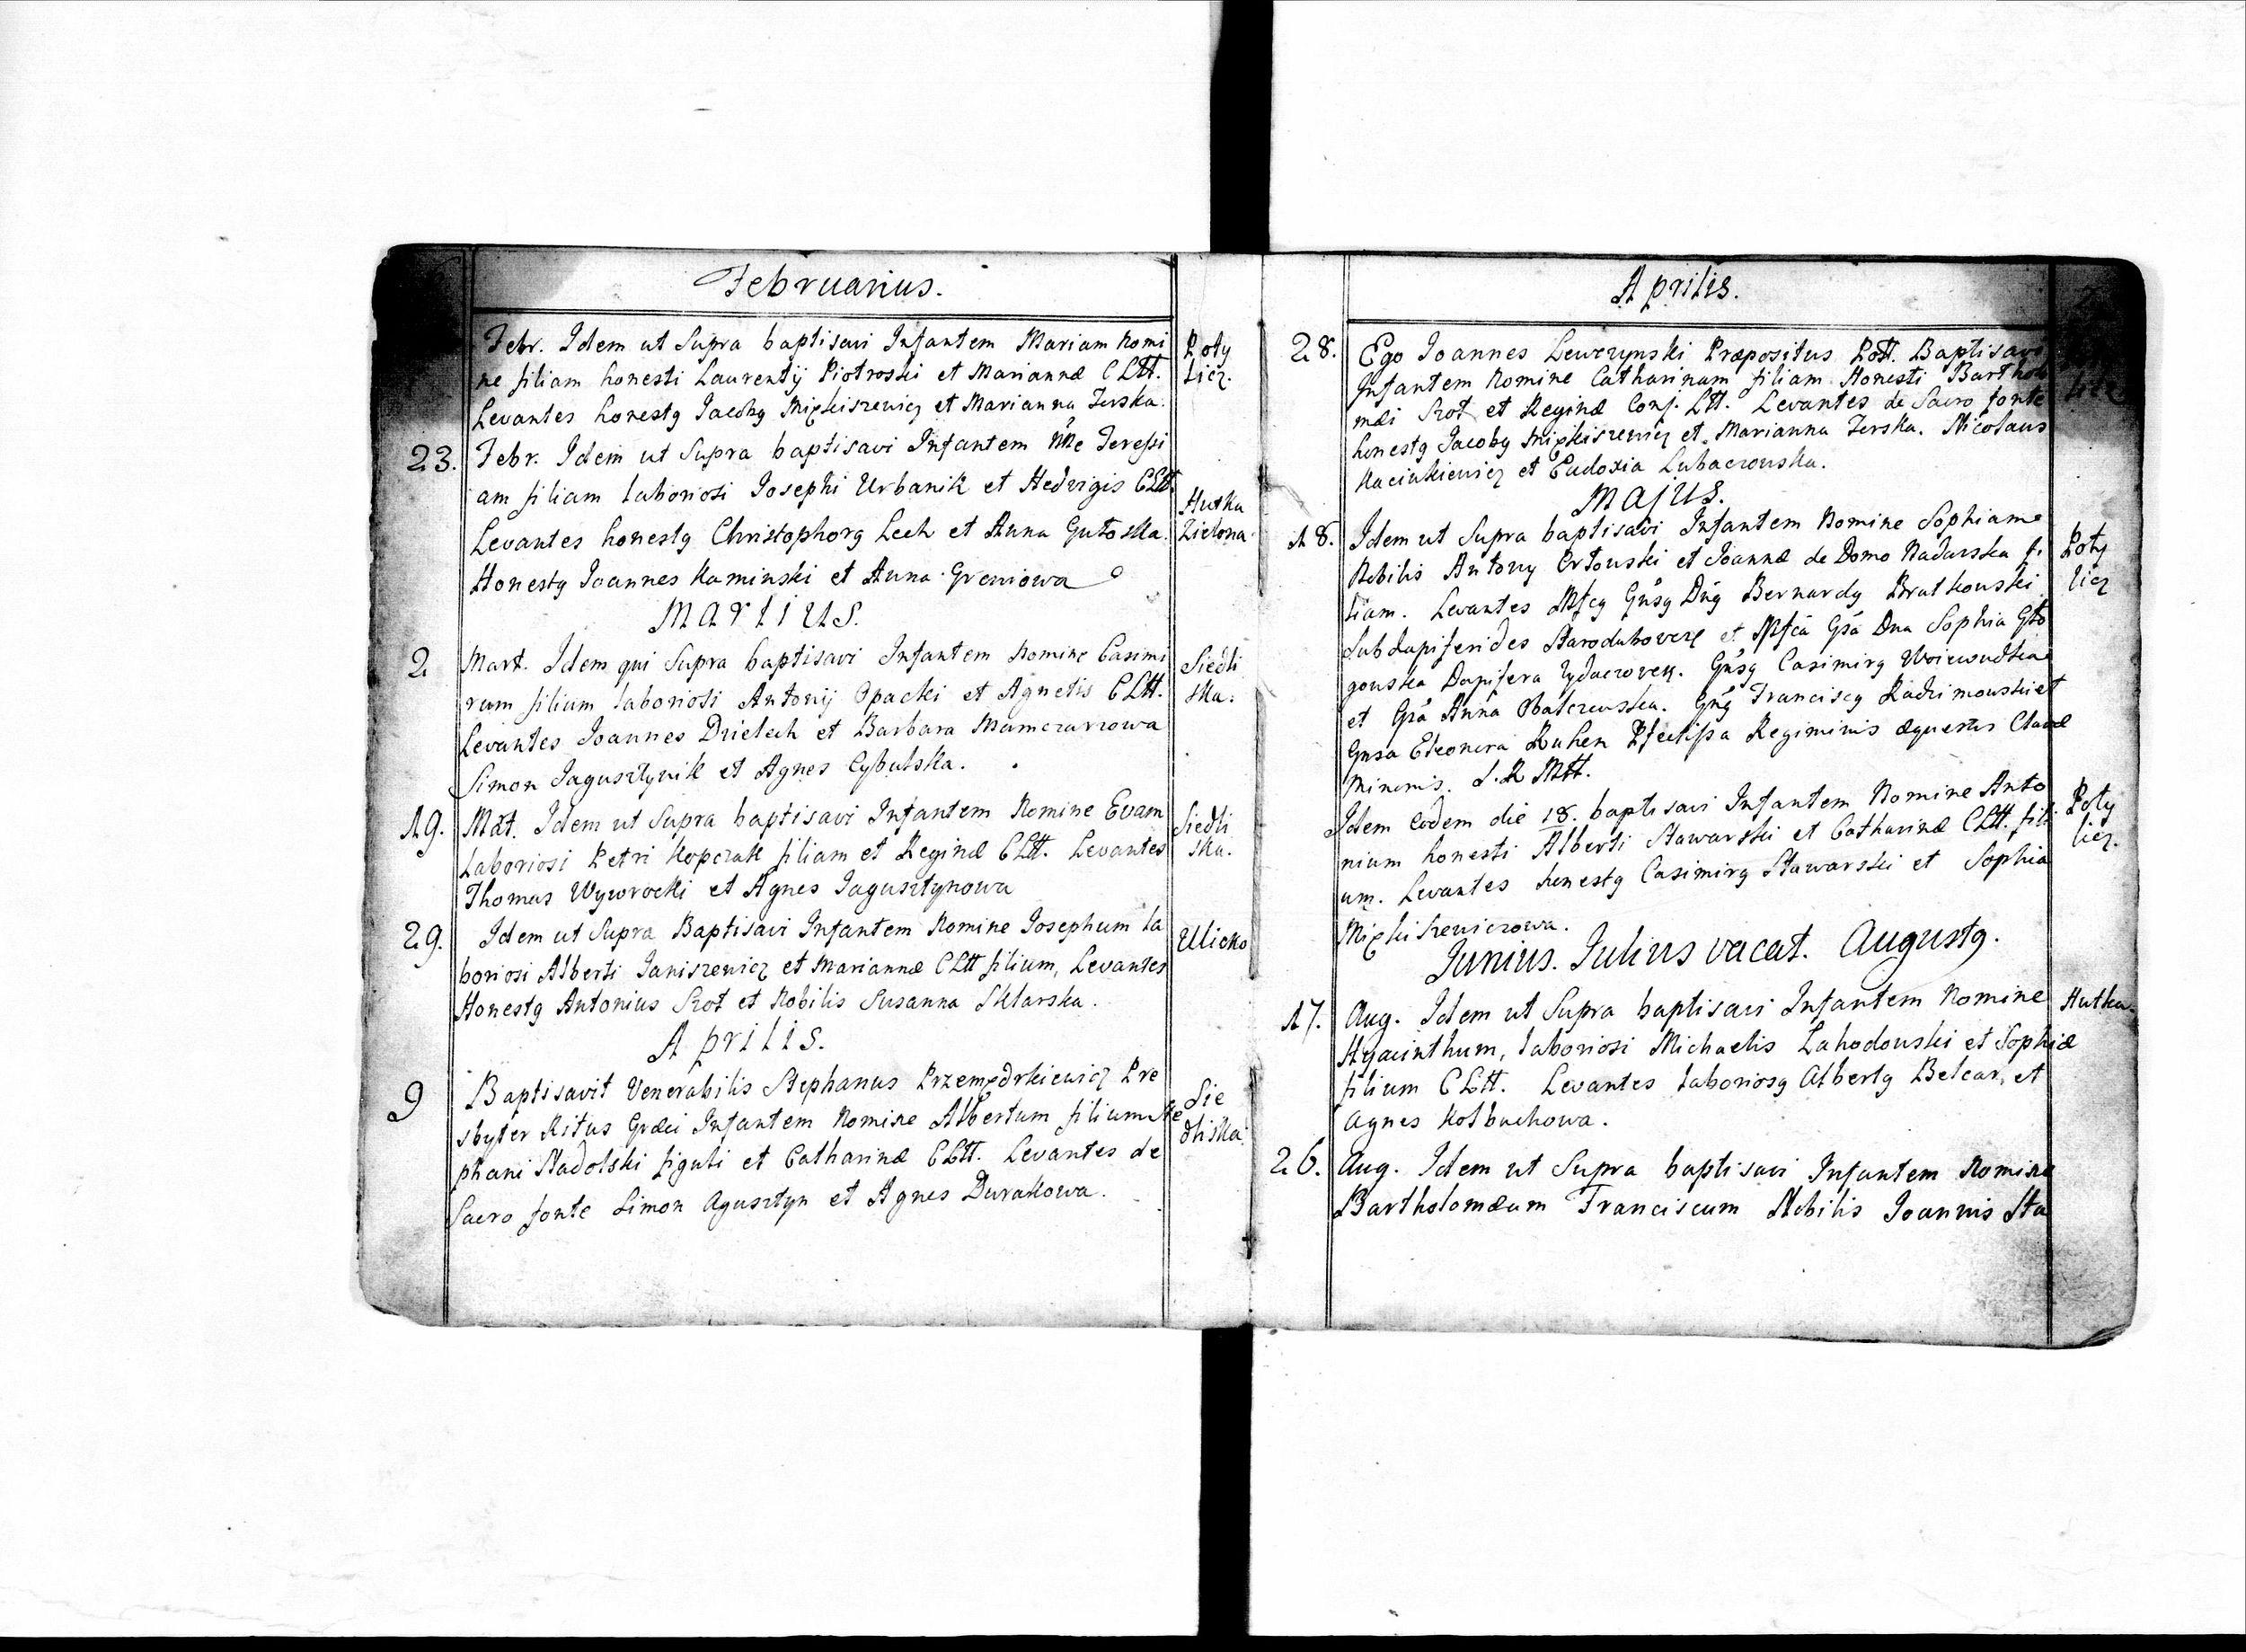 Februarius.
Febr. Idem ut Supra baptisavi Infantem Mariam Nomi
ne filiam honesti Laurentij Piotroski et Mariannæ C Ltt.
Levantes honestq Jacobq Miękiszewicz et Marianna Terska.
Poty
licz.
23.
Febr. Idem ut Supra baptisavi Infantem Nne Teressi
am filiam laboriosi Josephi Urbanik et Hedvigis C Ltt.
Levantes honestq Christophorq Lech et Anna Gutoska.
Honestq Joannes Kaminski et Anna Greniowa
Hutka
Zielona.
Martius.
2
Mart. Idem qui Supra baptisavi Infantem Nomine Casimi
rum filium laboriosi Antonij Opacki et Agnetis C Ltt.
Levantes Joannes Dzielech et Barbara Mamczarzowa
Simon Jagusztynik et Agnes Cybulska.
Siedli
ska.
19.
Mãt. Idem ut Supra baptisavi Infantem Nomine Evam
Laboriosi Petri Kopczak filiam et Reginæ C Ltt. Levantes
Thomas Wyworocki et Agnes Jagusztynowa
Siedli
ska.
29.
Idem ut Supra Baptisavi Infantem Nomine Josephum la
boriosi Alberti Janiszewicz et Mariannæ C Ltt filium, Levantes
Honestq Antonius Szot et Nobilis Susanna Sklarska.
Ulicko
Aprilis.
9
Baptisavit Venerabilis Stephanus Przemędrkiewicz Pre
sbyter Ritus Græci Infantem Nomine Albertum filium Ste
phani Stadolski figuli et Catharinæ C Ltt. Levantes de
Sacro fonte Simon Agusztyn et Agnes Durakowa.
Sie
dliska.
Aprilis.
28.
Ego Joannes Lewczynski Præpositus Pott. Baptisavi
Infantem Nomine Catharinam filiam Honesti Bartholo
mæi Szot et Reginæ Conj. Ltt. Levantes de Sacro fonte
honestq Jacobq Miękiszewicz et Marianna Terska. Nicolaus
Kacinkiewicz et Eudoxia Lubaczowska.
licz
Majus.
18.
Idem ut Supra baptisavi Infantem Nomine Sophiam
Nobilis Antony Ortouski et Joannæ de Domo Nadarska fi
liam. Levantes Mfcq Gnsq Dnq Bernardq Bratkouski
Subdapiferides Starodubovcze et Mfca Gsa Dna Sophia Gło
gouska Dapifera Zydaczoven. Gnsq Casimirq Woiewudka
et Gsa Anna Obalczewska. Gnq Franciscq Radzimouski et
Gnsa Eleonora Ruhen Pfectissa Regiminis æquestris Clavæ
Minoris. S. R Mtt.
Poty
licz
Idem eodem die 18. baptisavi Infantem Nomine Anto
nium honesti Alberti Stawarski et Catharinæ C Ltt. fili
um. Levantes honestq Casimirq Stawarski et Sophia
Mięki Szewiczowa.
Poty
licz.
Junius. Julius vacat. Augustq.
17.
Aug. Idem ut Supra baptisavi Infantem Nomine
Hyacinthum, laboriosi Michaelis Lahodouski et Sophiæ
filium C Ltt. Levantes laboriosq Albertq Belcar, et
Agnes Kolbuchowa.
Hutka.
26.
Aug. Idem ut Supra baptisavi Infantem Nomine
Bartholomæum Franciscum Nobilis Joannis Sta